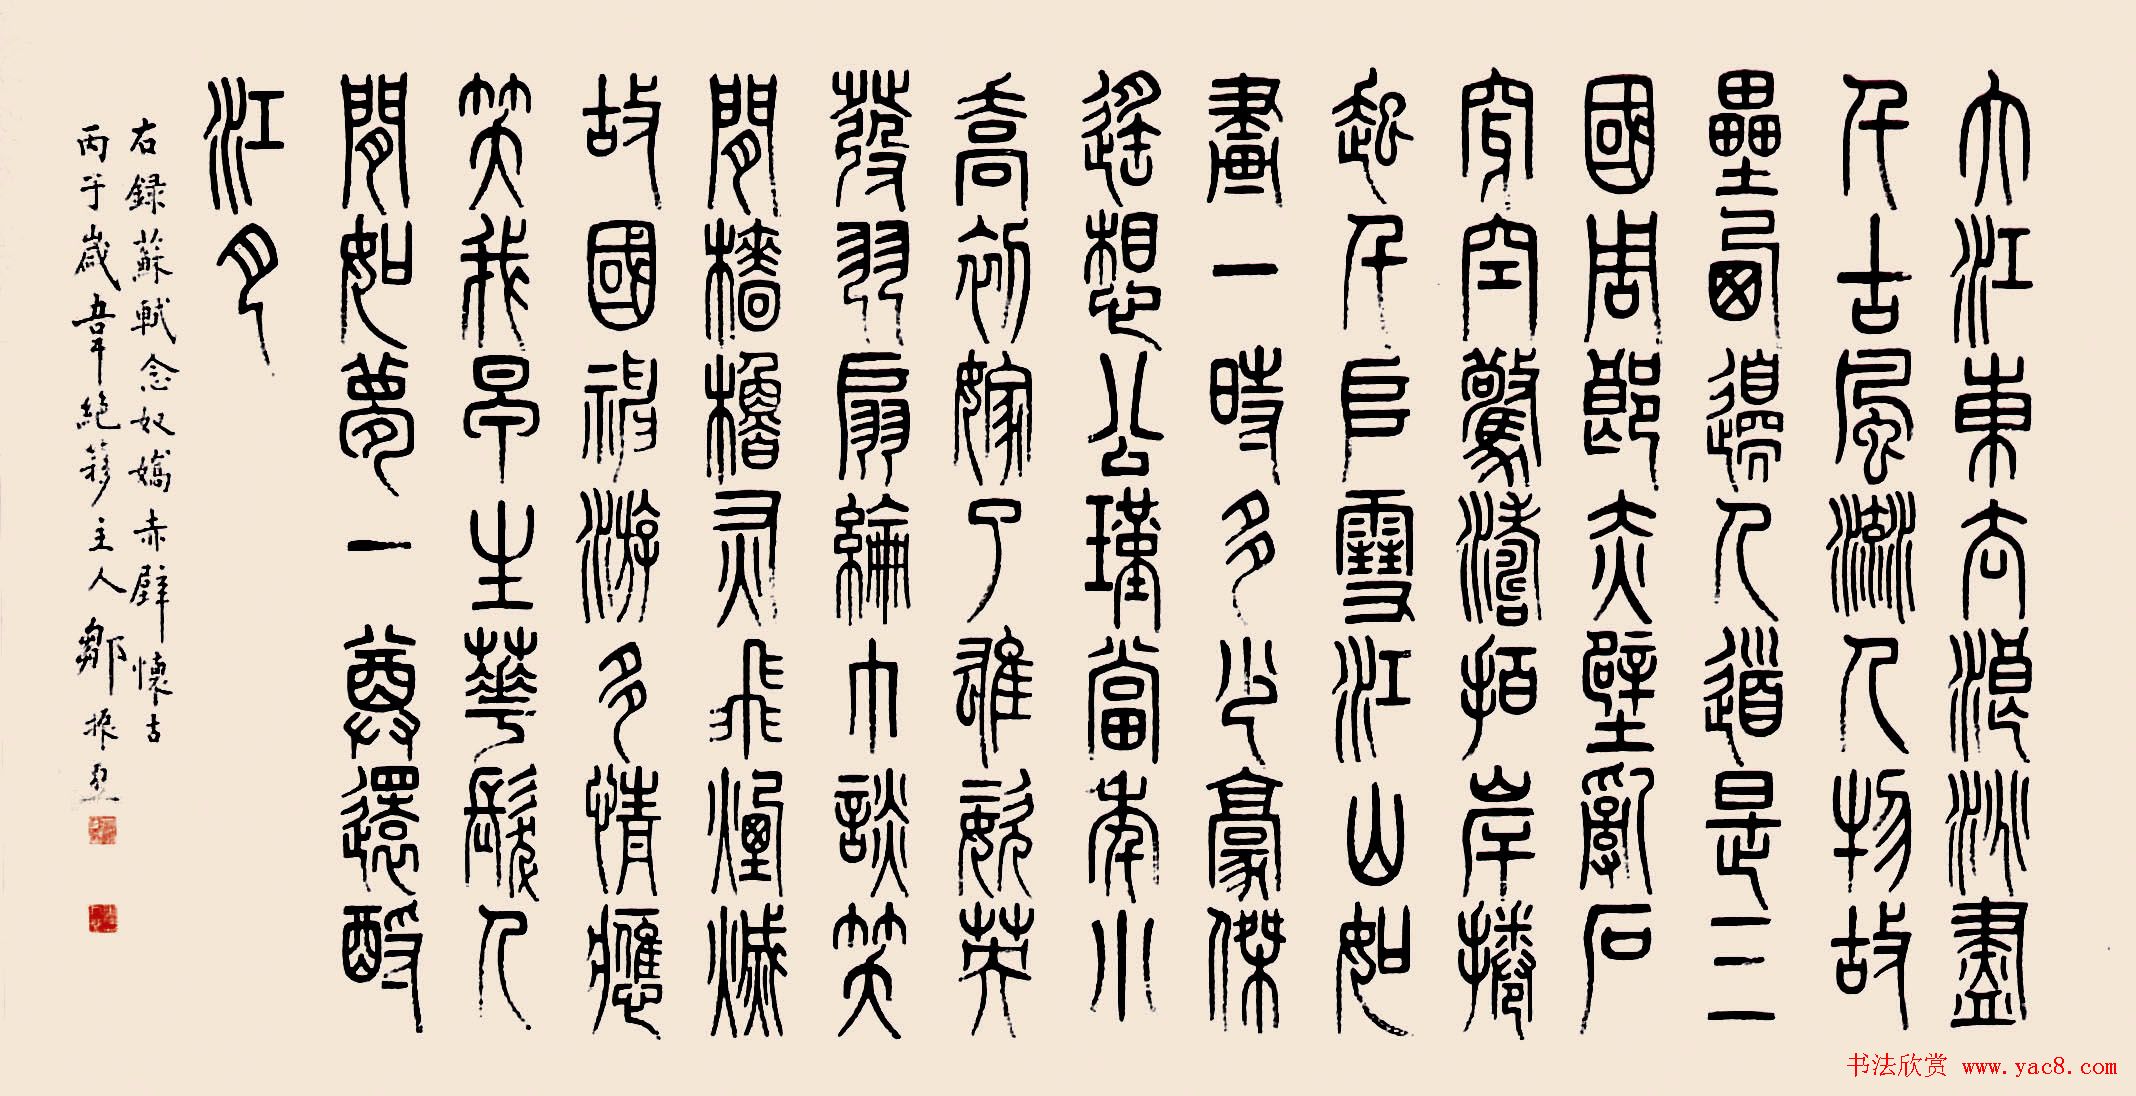 大江東去浪淘盡
千古風流人物故
壘西邊人道是三
國周郎赤壁亂石
穿空驚濤拍岸捲
起千堆雪江山如
畫一時多少豪傑
遙想公瑾當年小
喬初嫁了雄姿英
發羽扇綸巾談笑
間檣櫓灰飛煙滅
故國神游多情應
笑我早生華髮人
間如夢一尊還酹
江月
右録蘇軾念奴嬌赤壁懷古
丙子歲韋絕簃主人鄒振亞
书法欣赏 www.yac8.com